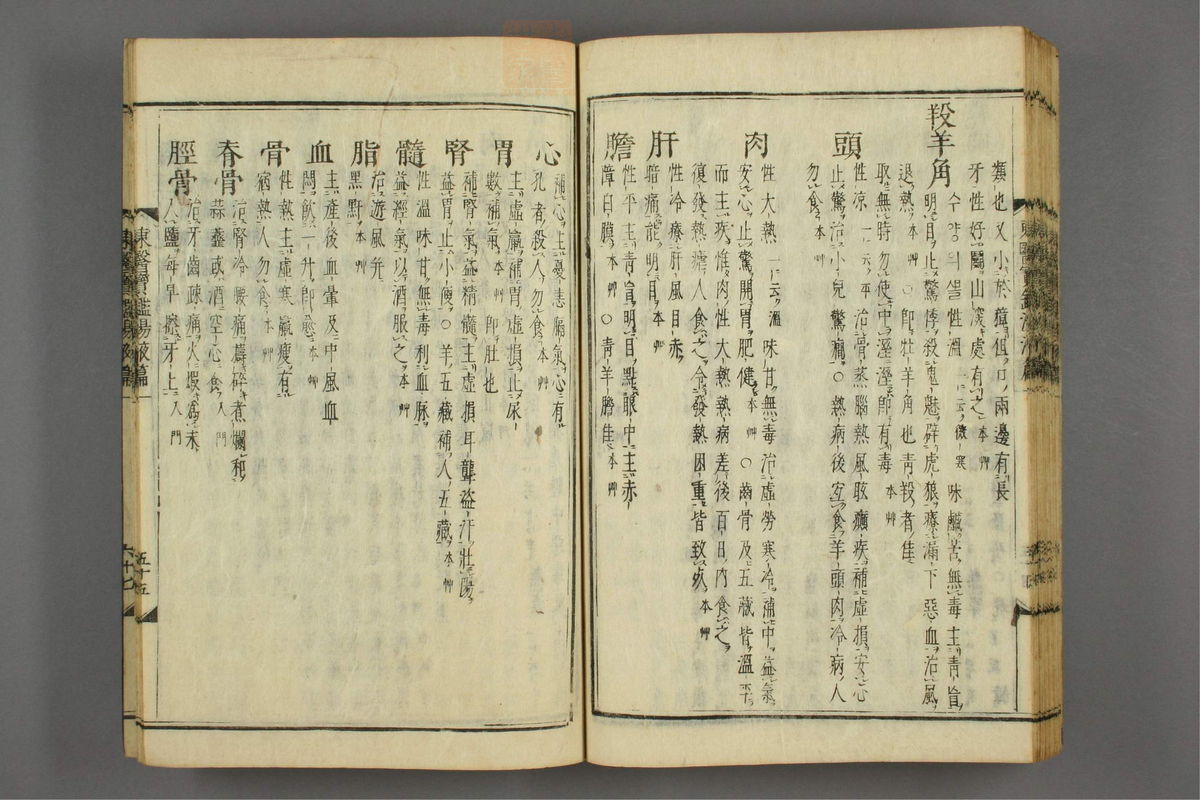 類也又小於瘴狟口兩邊有長
牙性好鬪山溪處有之本艸
羖羊角
수양의쓸性溫一云微寒味鹹苦無毒主靑盲
明目止驚悸殺鬼魅辟虎狼療漏下惡血治風
退熱〇卽牡羊角也靑羖者佳
取無時勿使中濕濕卽有毒本艸
頭
性凉一云平治骨蒸腦熱風眩癲疾補虛損安心
止驚治小兒驚癎〇熱病後宜食羊頭肉冷病人
勿食本艸
肉
性大熱一云溫味甘無毒治虛勞寒冷補中益氣
安心止驚開胃肥健本艸〇齒骨及五藏皆溫平
而主疾惟肉性大熱熱病差後百日內食之
復發熱瘧人食之令發熱困重皆致死本艸
肝
性冷療肝風目赤
暗痛能明目本艸
膽
性平主靑盲明目點眼中主赤
障白膜本艸〇靑羊膽佳本艸
心
補心主憂恚膈氣心有
孔者殺人勿食本艸
胃
主虛羸補胃虛損止尿
數補氣本艸卽肚也
腎
補腎氣益精髓主虛損耳聾盜汗壯陽
益胃止小便〇羊五藏補人五藏本艸
髓
性溫味甘無毒利血脉
益經氣以酒服之本艸
脂
治遊風幷
黑䵟本艸
血
主產後血暈及中風血
悶飮一升卽愈本艸
骨
性熱主虛寒羸瘦有
宿熱人勿食本艸
脊骨
治腎冷腰痛擣碎煮爛和
蒜虀或酒空心食入門
脛骨
治牙齒疎痛火煆爲末
入鹽每早擦牙上入門
東醫寶鑑湯液篇
六十七
五十五